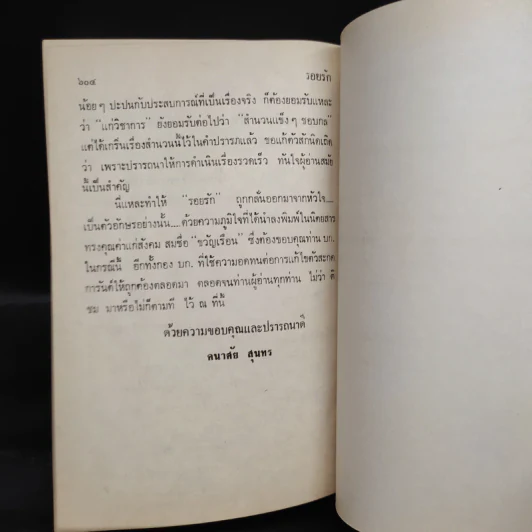 ๖๐๔ รอยรัก
น้อย ๆ ปะปนกับประสบการณ์ที่เป็นเรื่องจริง ก็ต้องยอมรับแหละ
ว่า "แก่วิชาการ" ยังยอมรับต่อไปว่า "สำนวนแข็ง ๆ ชอบกล"
แต่ได้เกริ่นเรื่องสำนวนนี้ไว้ในคำปรารภแล้ว ขอแก้ตัวสักนิดเถิด
ว่า เพราะปรารถนาให้การดำเนินเรื่องรวดเร็ว ทันใจผู้อ่านสมัย
นี้เป็นสำคัญ
นี่แหละทำให้ "รอยรัก" ถูกกลั่นออกมาจากหัวใจ....
เป็นตัวอักษรอย่างนั้น....ด้วยความภูมิใจที่ได้นำลงพิมพ์ในนิตยสาร
ทรงคุณค่าแก่สังคม สมชื่อ "ขวัญเรือน" ซึ่งต้องขอบคุณท่าน บก.
ในกรณีนี้ อีกทั้งกอง บก. ที่ใช้ความอดทนต่อการแก้ไขตัวสะกด
การันต์ให้ถูกต้องตลอดมา ตลอดจนท่านผู้อ่านทุกท่าน ไม่ว่า ติ
ชม มาหรือไม่ก็ตามที ไว้ ณ ที่นี้
ด้วยความขอบคุณและปรารถนาดี
สุนทร